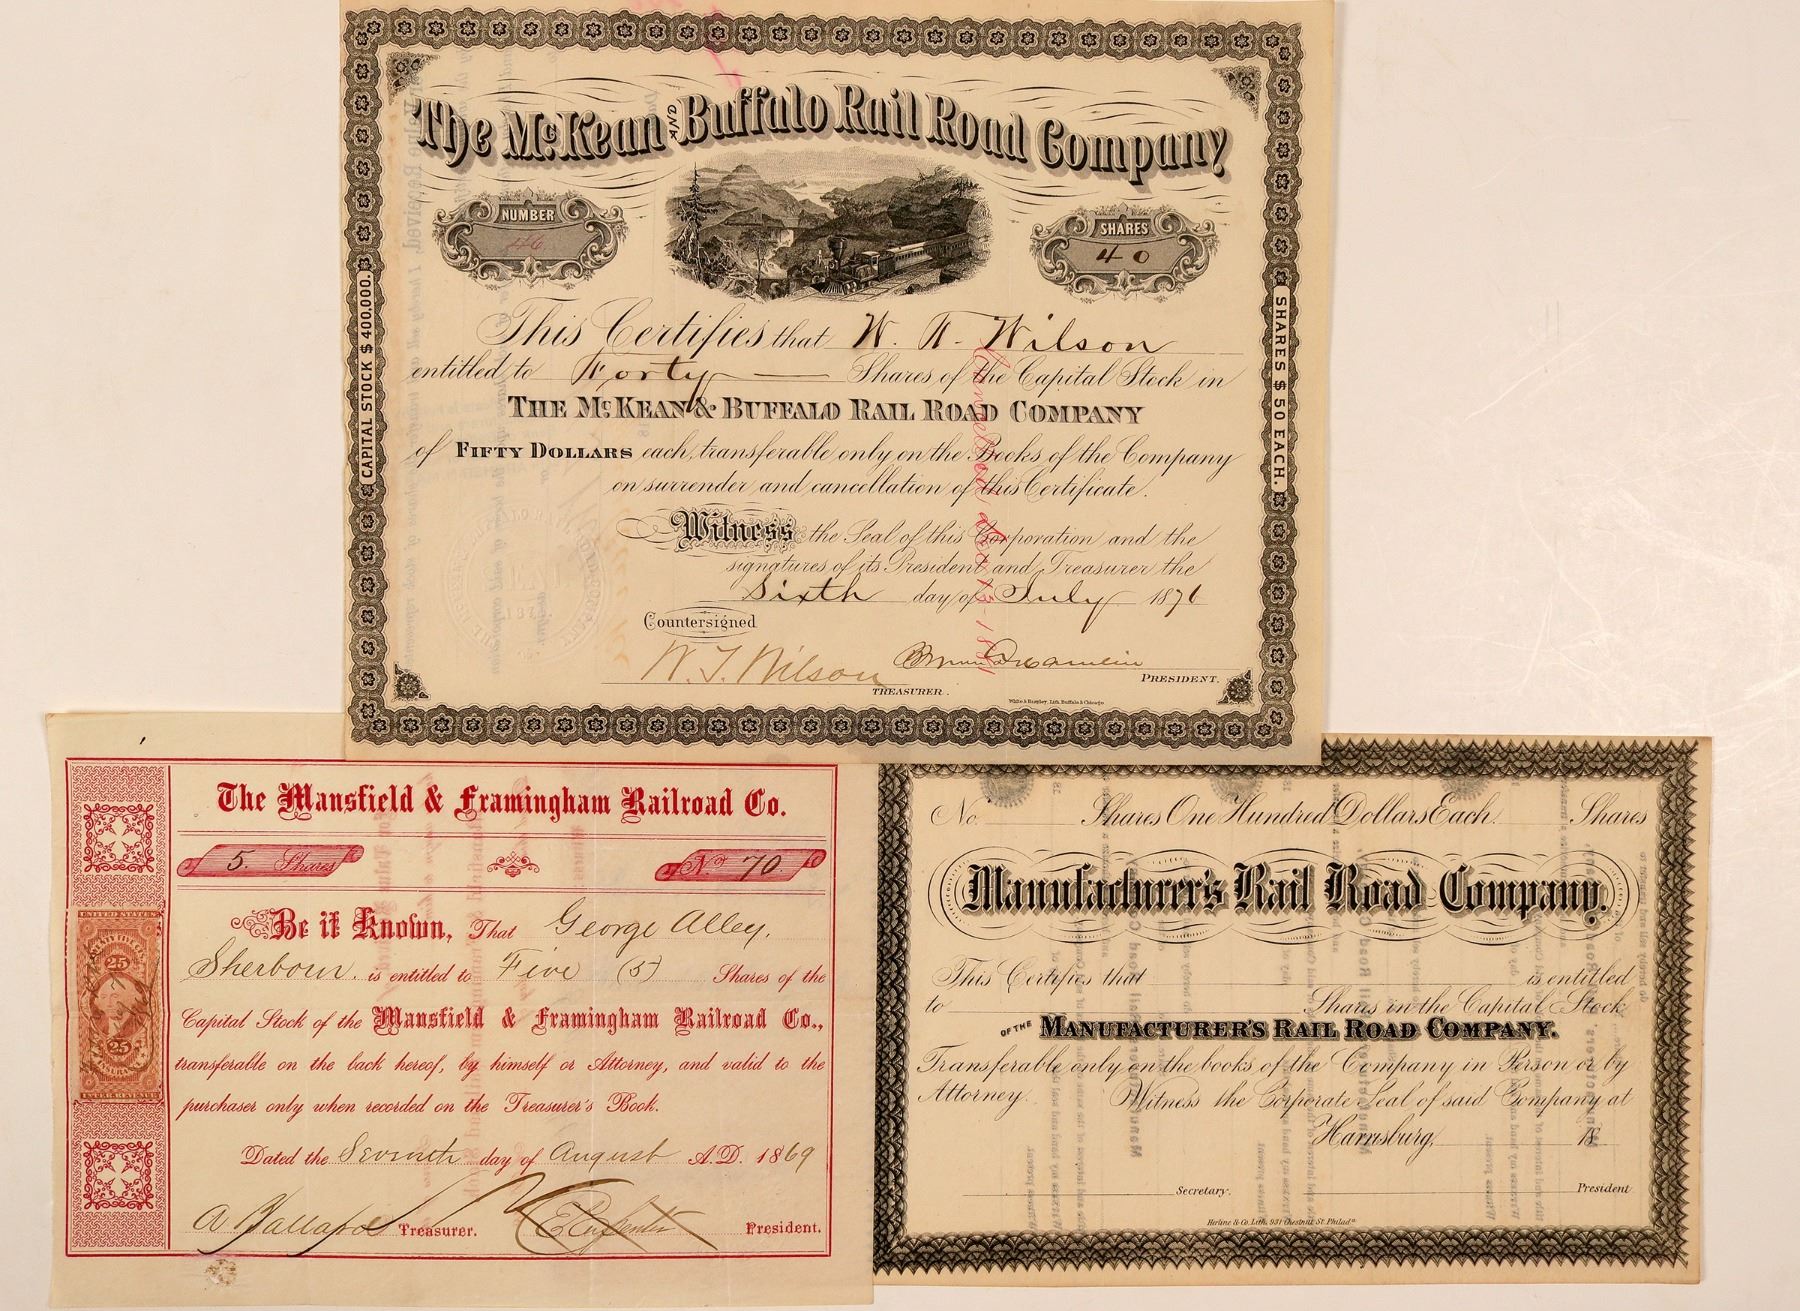 The McKean AND Buffalo Rail Road Company
NUMBER
46
SHARES
40
CAPITAL STOCK $400,000.
SHARES $50 EACH.
This Certifies that W. T. Wilson
entitled to Forty Shares of the Capital Stock in
THE McKEAN & BUFFALO RAIL ROAD COMPANY
of FIFTY DOLLARS each, transferable only on the Books of the Company
on surrender and cancellation of this Certificate.
Witness the Seal of this Corporation and the
signatures of its President and Treasurer the
Sixth day of July 1876
Countersigned
W. T. Wilson
TREASURER.
PRESIDENT.
Lith. Buffalo & Chicago
The Mansfield & Framingham Railroad Co.
5. Shares
No 70.
Be it Known, That George Alley,
Sherborn. is entitled to Five (5) Shares of the
Capital Stock of the Mansfield & Framingham Railroad Co.,
transferable on the back hereof, by himself or Attorney, and valid to the
purchaser only when recorded on the Treasurer's Book.
Dated the Seventh day of August A.D. 1869
A Ballard Treasurer.
President.
UNITED STATES
25
25
INTER. REVENUE
No. Shares One Hundred Dollars Each. Shares
Manufacturer's Rail Road Company.
This Certifies that is entitled
to Shares in the Capital Stock
OF THE MANUFACTURER'S RAIL ROAD COMPANY.
Transferable only on the books of the Company in Person or by
Attorney. Witness the Corporate Seal of said Company at
Harrisburg, 18
Secretary.
President
Herline & Co. Lith. 931 Chestnut St. Philada.